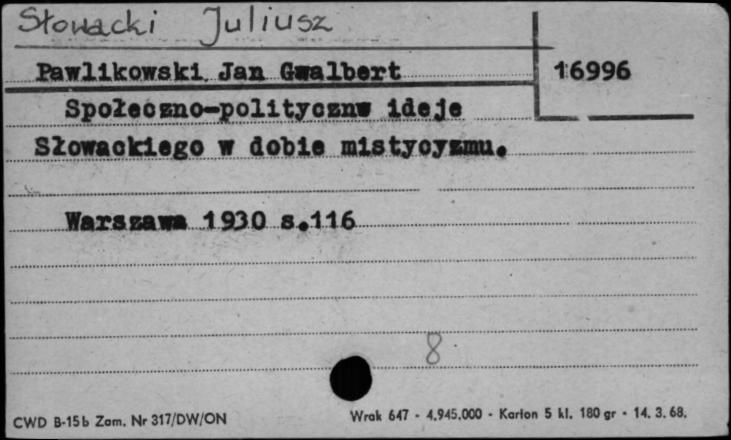 Słowacki Juliusz
Pawlikowski Jan Gwalbert
16996
Społeczno-polityczne ideje
Słowackiego w dobie mistycyzmu.
Warszawa 1930 s.116
8
CWD B-15b Zam. Nr 317/DW/ON
Wrak 647 - 4.945.000 - Karton 5 kl. 180 gr - 14. 3. 68.